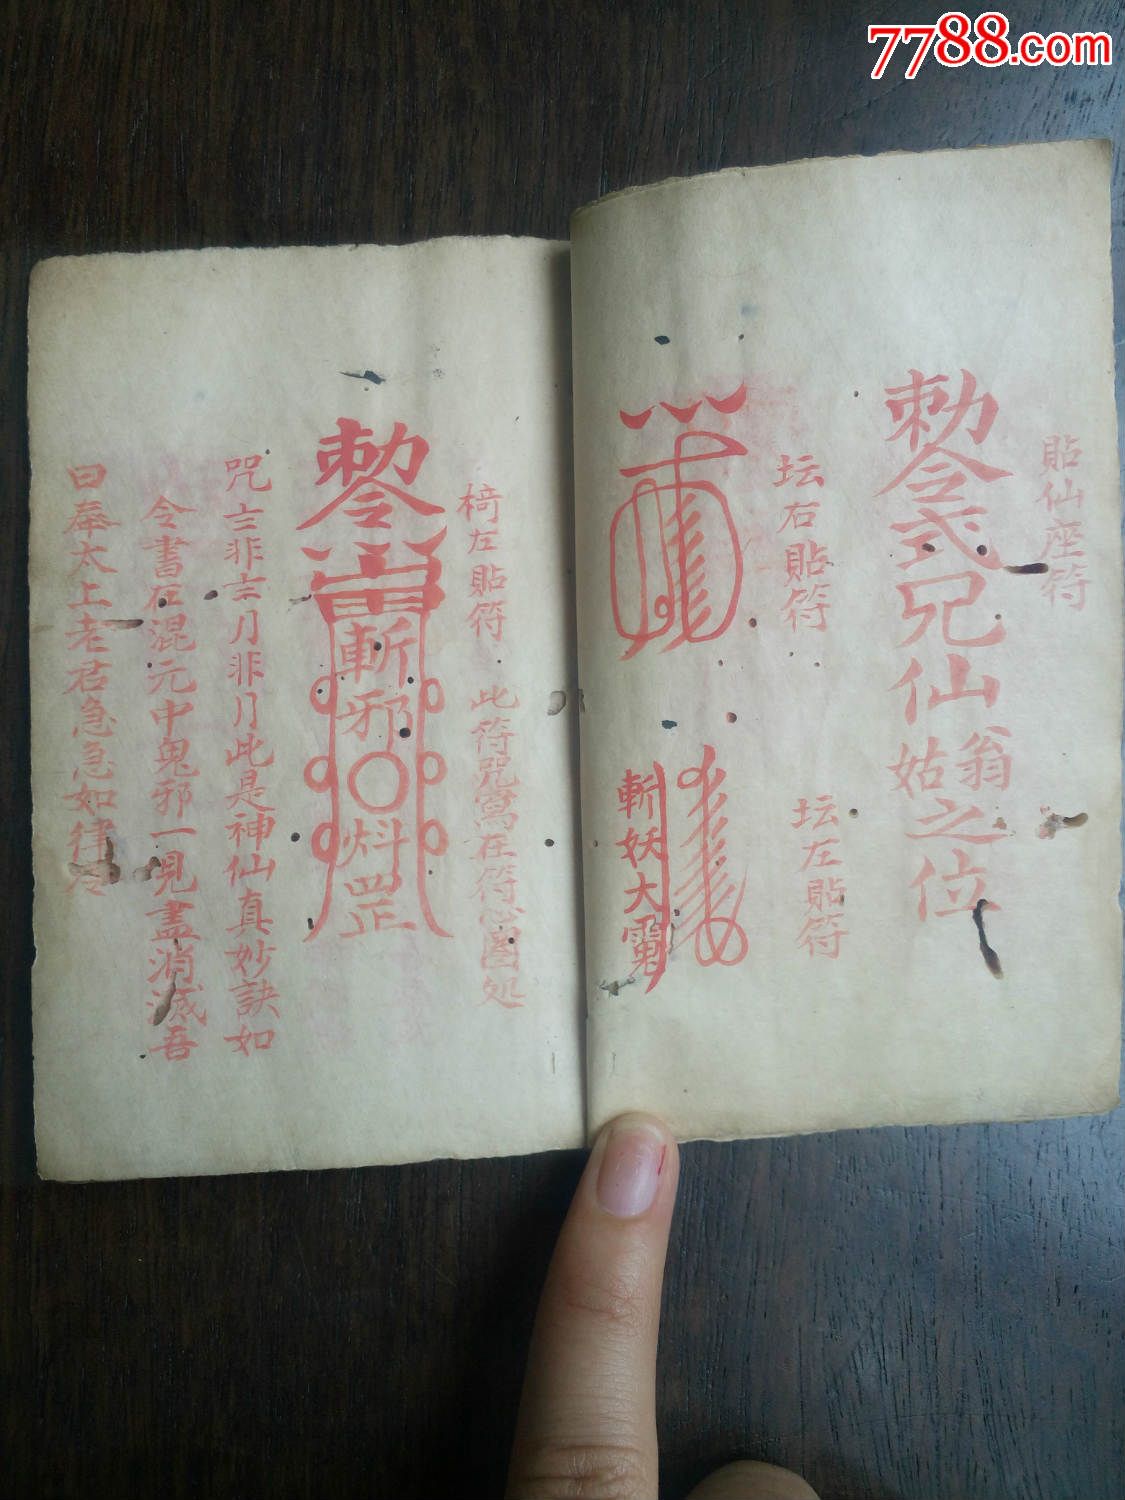 7788.com
貼仙座符
勅令弍兄仙翁姑之位
坛右貼符
坛左貼符
斬妖大
椅左貼符 此符咒寫在符心圈处
勅令
雷
斬邪
罡
咒 非 月非月此是神仙真妙訣如
令書在混元中鬼邪一見盡消滅吾
曰奉太上老君急急如律令